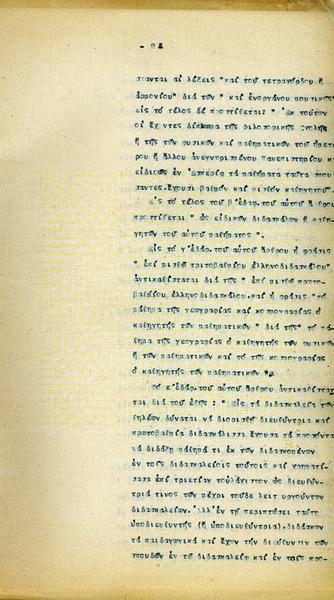 - 24
πανται αἱ λέξεις "καί τοῦ τετραχόρδου ἤ
ἁρμονίου" διά τῶν " καί ἐνοργάνου μουσικῆς
εἰς τό τέλος δέ προστίθεται: " Ἐκ τούτων
οἱ ἔχοντες δίπλωμα τῆς φιλοσοφικῆς σχολῆς
ἤ τῆς τῶν φυσικῶν καί μαθηματικῶν τοῦ ἡμετέ
ρου ἤ ἄλλου ἀνεγνωρισμένου πανεπιστημίου καί
εἰδικῶς ἐν τά μαθήματα ταῦτα σπου
δάσαντες, ἔχουσι βαθμόν καί μισθόν καθηγητοῦ".
Εἰς τό τέλος τοῦ β'ἐδαφ. τοῦ αὐτοῦ ἄρθρου
προστίθεται " ὡς εἰδικῶν διδασκάλων ἤ καθη-
γητῶν τοῦ αὐτοῦ μαθήματος".
Εἰς τό γ'ἐδαφ. τοῦ αὐτοῦ ἄρθρου ἡ φράσις
" ἐπί μισθῷ τριτοβαθμίου ἑλληνοδιδασκάλου"
ἀντικαθίσταται διά τῆς " ἐπί μισθῷ πρωτο-
βαθμίου ἑλληνοδιδασκάλου, καί ἡ φράσις "τό
μάθημα τῆς γεωγραφίας καί κοσμογραφίας ὁ
καθηγητής τῶν μαθηματικῶν " διά τῆς" τό μά-
θημα τῆς γεωγραφίας ὁ καθηγητής τῶν φυσικῶν
ἤ τῶν μαθηματικῶν καί τό τῆς κοσμογραφίας
ὁ καθηγητής τῶν μαθηματικῶν ".
Τό ε'ἐδαφ. τοῦ αὐτοῦ ἄρθρου ἀντικαθίστα
ται διά τοῦ ἑξῆς: " Εἰς τά διδασκαλεῖα τῶν
θηλέων δύναται νά διορισθῇ διευθύντρια καί
πρωτοβάθμια διδασκάλισσα ἔχουσα τά προσόντα
νά διδάξῃ μάθημά τι ἐκ τῶν διδασκομένων
ἐν τοῖς διδασκαλείοις τούτοις καί χρηματί-
σασα ἐπί τριετίαν τοὐλάχιστον ὡς διευθύν-
τριά τινος τῶν μέχρι τοῦδε λειτουργούντων
διδασκαλείων. Ἀλλ' ἐν τῇ περιπτώσει ταύτῃ
ὑποδιευθυντής (ἤ ὑποδιευθύντρια), διδάσκων
τά παιδαγωγικά καί ἔχων τήν διεύθυνσιν τῶν
σπουδῶν ἐν τῷ διδασκαλείῳ καί ἐν τοῖς προ-